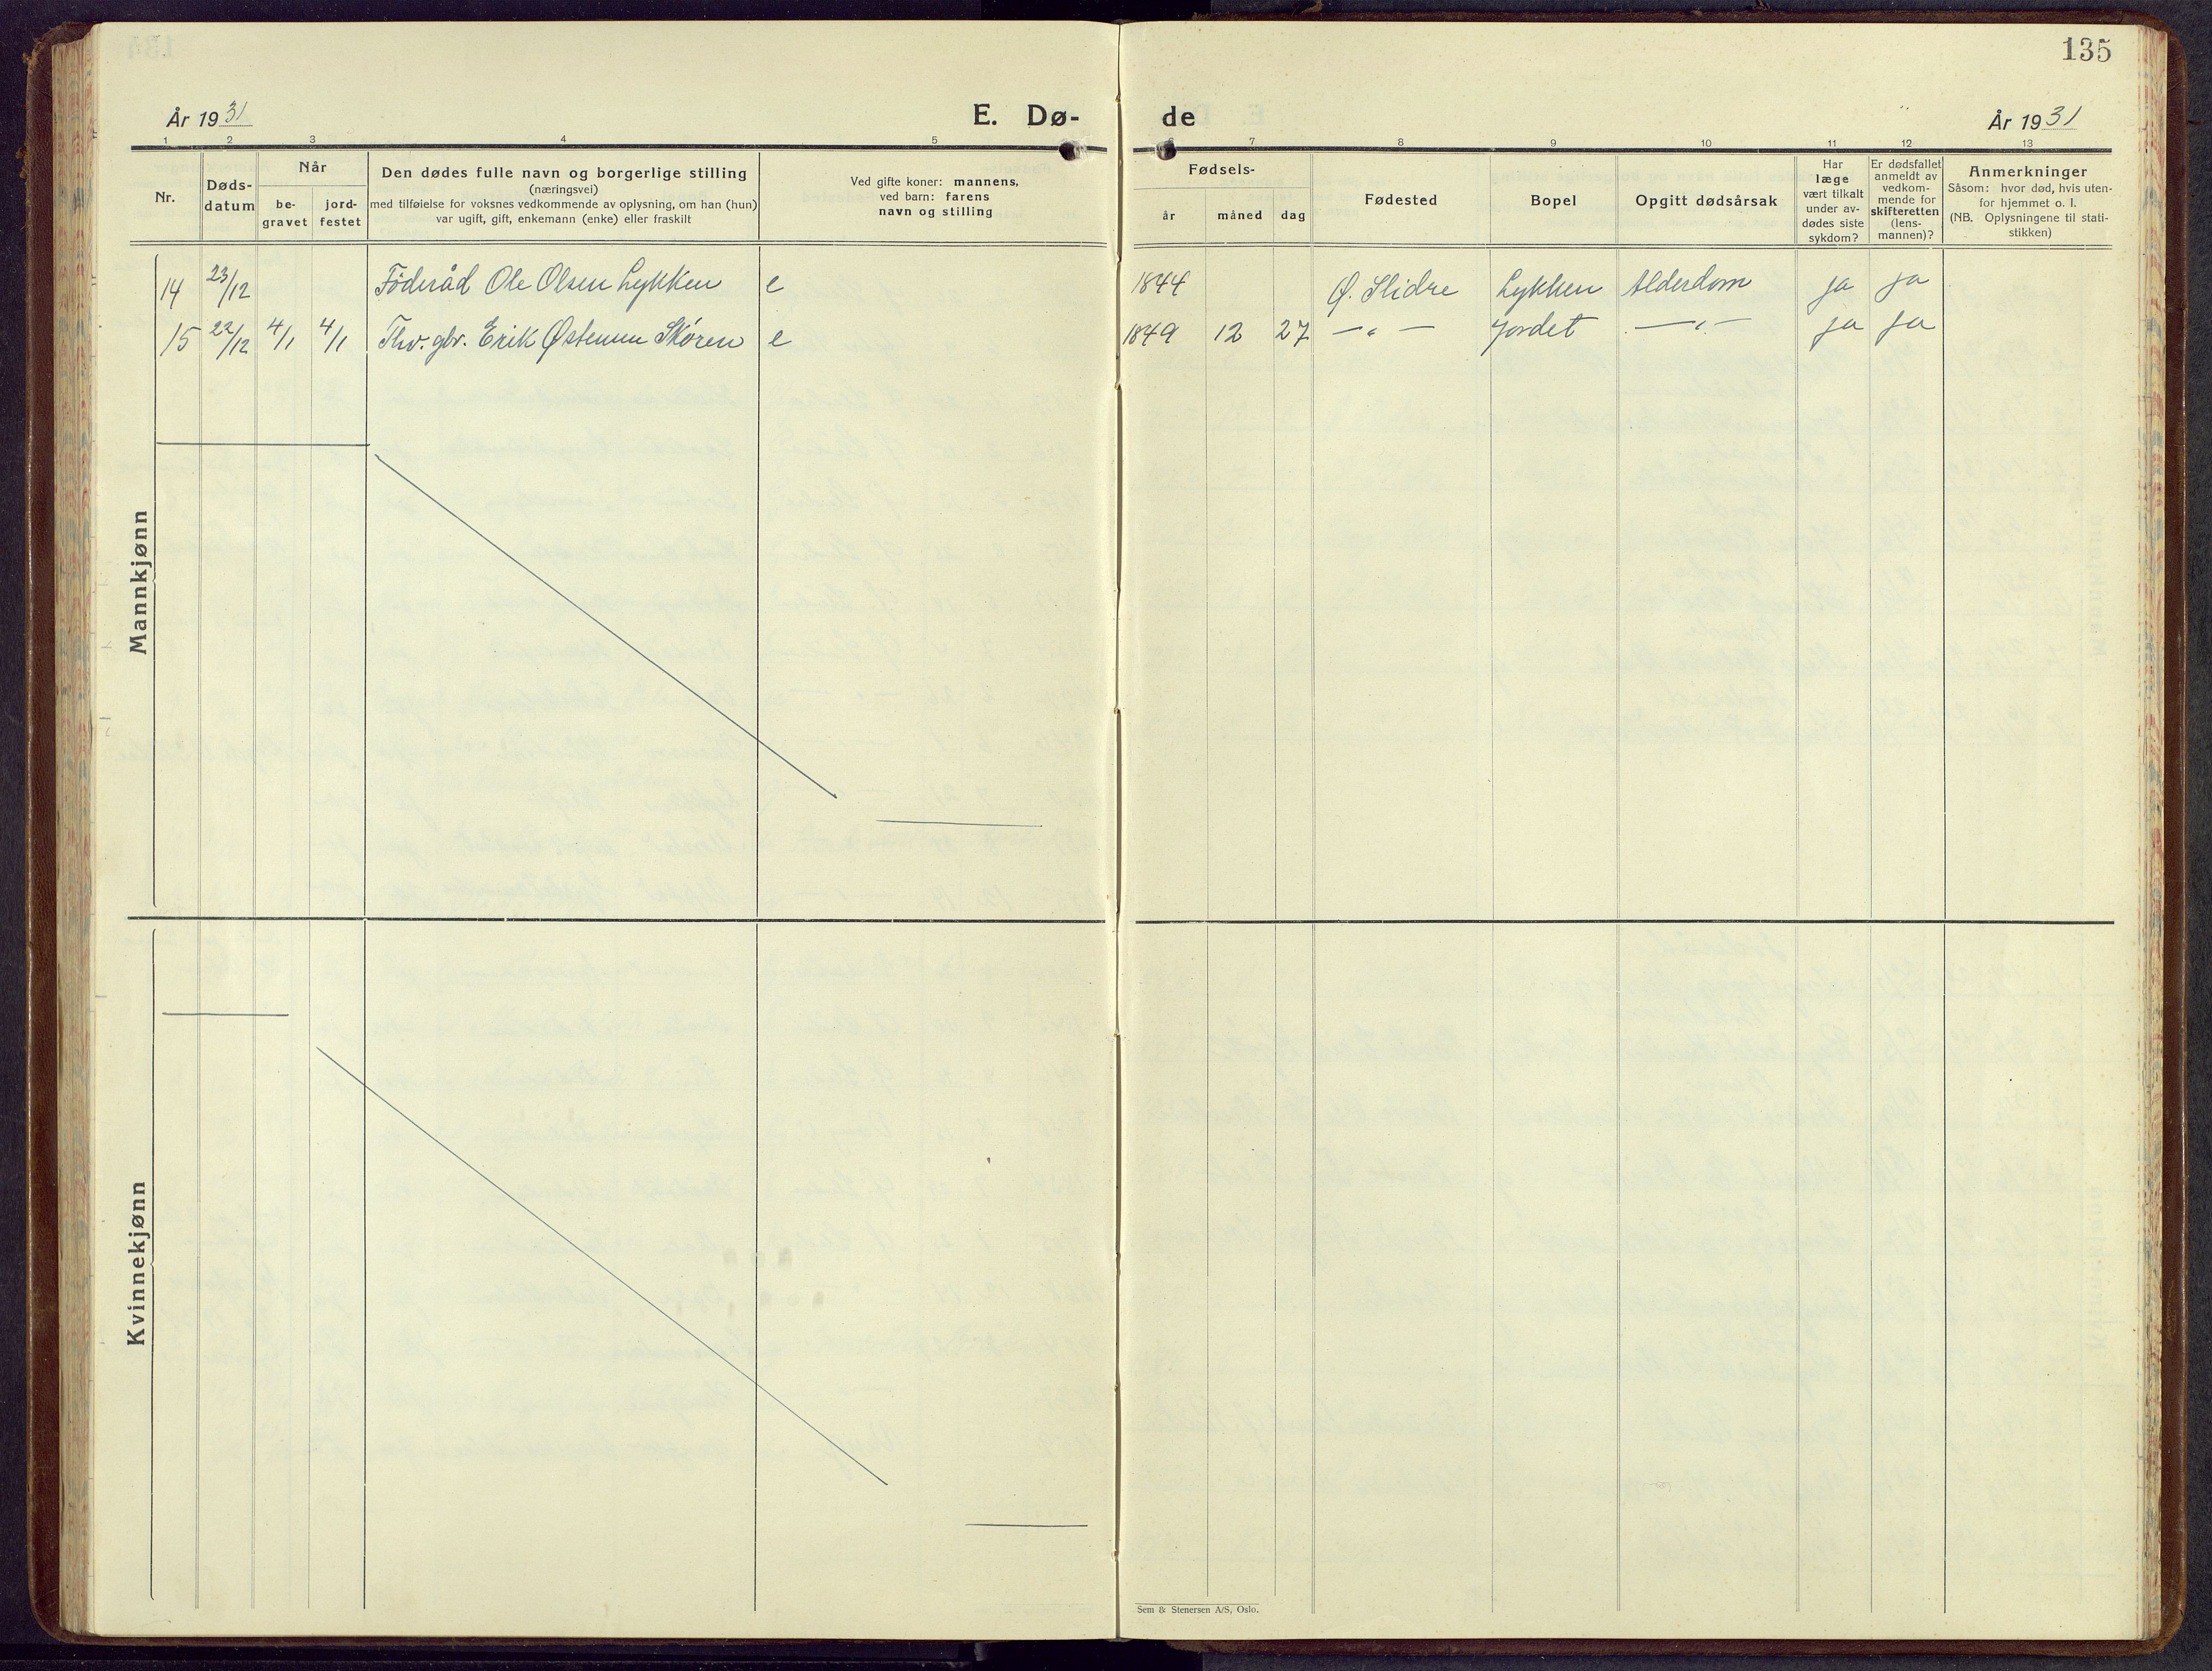 135
År 1931
E. Dø-
de
År 1931
1 2 3 4 5 6 7 8 9 10 11 12 13
Nr.
Døds-
datum
Når
be-
gravet
jord-
festet
Den dødes fulle navn og borgerlige stilling
(næringsvei)
med tilføielse for voksnes vedkommende av oplysning, om han (hun)
var ugift, gift, enkemann (enke) eller fraskilt
Ved gifte koner: mannens,
ved barn: farens
navn og stilling
Fødsels-
år måned dag
Fødested
Bopel
Opgitt dødsårsak
Har
læge
vært tilkalt
under av-
dødes siste
sykdom?
Er dødsfallet
anmeldt av
vedkom-
mende for
skifteretten
(lens-
mannen)?
Anmerkninger
Såsom: hvor død, hvis uten-
for hjemmet o. l.
(NB. Oplysningene til stati-
stikken)
Mannkjønn
14 23/12 Föderåd Ole Olsen Lykken e 1844 Ø. Slidre Lykken Alderdom ja ja
15 22/12 4/1 4/1 Thv. gbr. Erik Østensen Skören e 1849 12 27 — " — Jordet — " — ja ja
Kvinnekjønn
Sem & Stenersen A/S, Oslo.